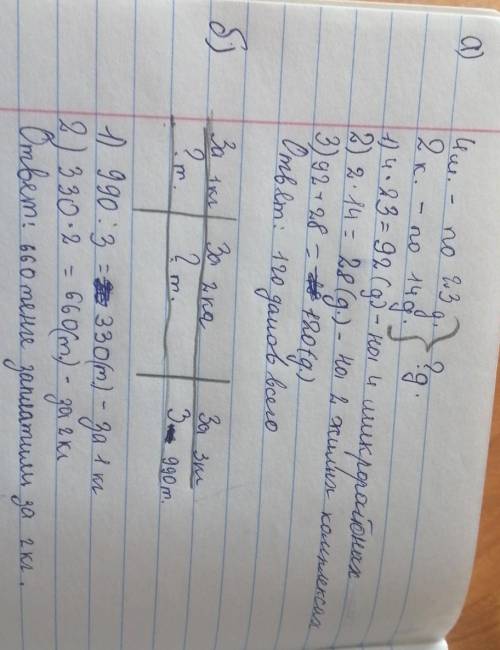 а)
4 м. - по 23 д.
2 к. - по 14 д. } ? д.
1) 4 · 23 = 92 (д.) - на 4 микрорайонах
2) 2 · 14 = 28 (д.) - на 2 жилых комплексах
3) 92 + 28 = 120 (д.)
Ответ: 120 домов всего
б)
За 1 кг За 2 кг За 3 кг
? т. ? т. 990 т.
1) 990 : 3 = 330 (т) - за 1 кг
2) 330 · 2 = 660 (т) - за 2 кг
Ответ: 660 тенге заплатили за 2 кг.